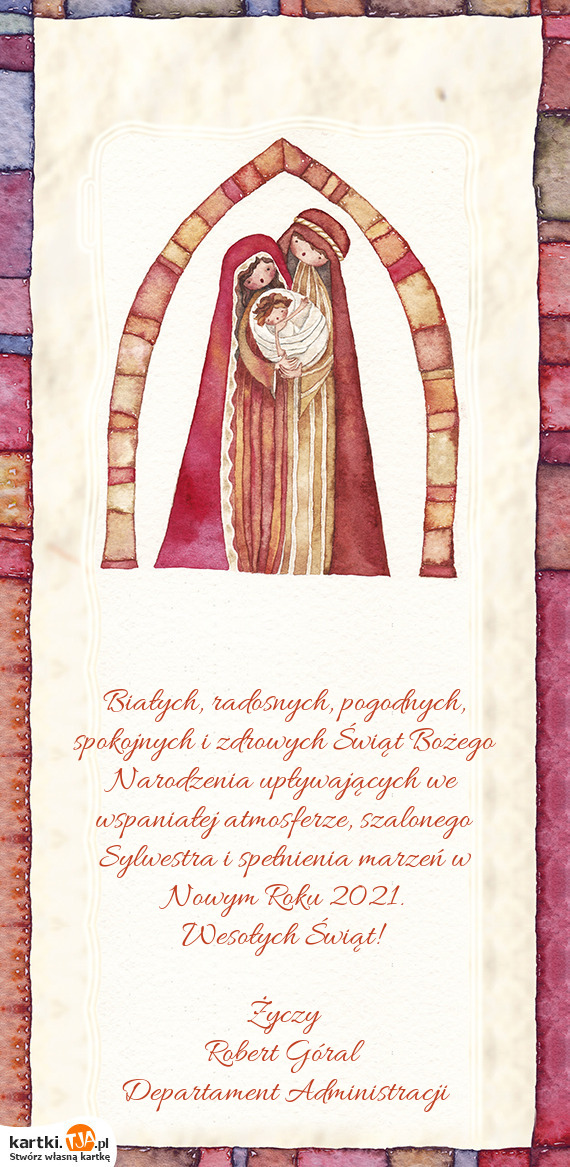 Białych, radosnych, pogodnych,
spokojnych i zdrowych Świąt Bożego
Narodzenia upływających we
wspaniałej atmosferze, szalonego
Sylwestra i spełnienia marzeń w
Nowym Roku 2021.
Wesołych Świąt!
Życzy
Robert Góral
Departament Administracji
kartki.TJA.pl
Stwórz własną kartkę